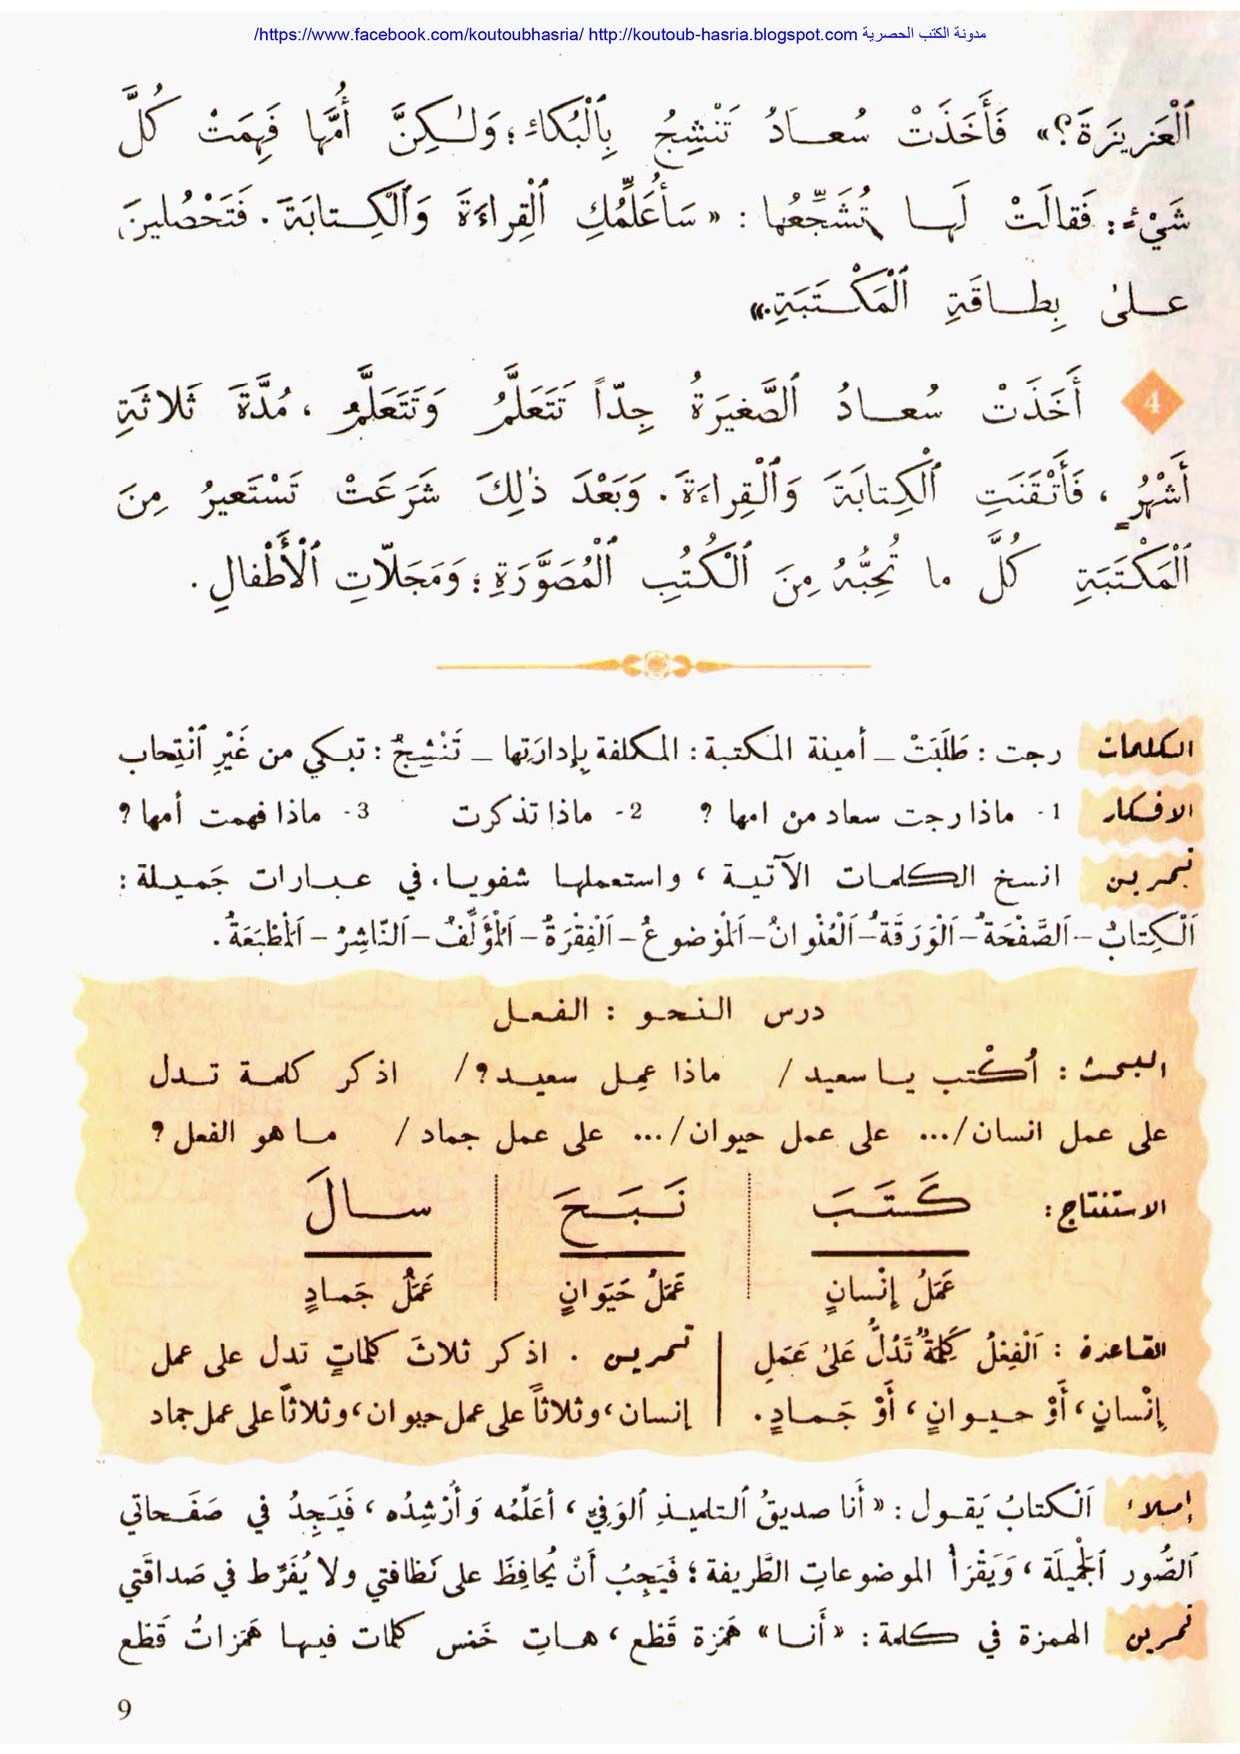 https://www.facebook.com/koutoubhasria/ http://koutoub-hasria.blogspot.com مدونة الكتب الحصرية/
ٱلْعَزِيزَةَ؟» فَأَخَذَتْ سُعَـادُ تَنْشِجُ بِٱلْبُكاءِ؛ وَلـٰكِنَّ أُمَّها فَهِمَتْ كُلَّ
شَيْءٍ: فَقالَتْ لَهـا تُشَجِّعُها: «سَأُعَلِّمُكِ ٱلْقِراءَةَ وَٱلْكِتابَةَ. فَتَحْصُلينَ
عـلىٰ بِطـاقَةِ ٱلْمَكْـتَبَةِ.»
4 أَخَذَتْ سُعـادُ ٱلصَّغيرَةُ جِدّاً تَتَعَلَّمُ وَتَتَعَلَّمُ، مُدَّةَ ثَلاثَةِ
أَشْهُرٍ، فَأَتْقَنَتِ ٱلْكِتابَةَ وَٱلْقِراءَةَ. وَبَعْدَ ذٰلِكَ شَرَعَتْ تَسْتَعيرُ مِنَ
ٱلْمَكْتَبَةِ كُلَّ ما تُحِبُّهُ مِنَ ٱلْكُتُبِ ٱلْمُصَوَّرَةِ؛ وَمَجَلّاتِ ٱلْأَطْفالِ.
الكلمات رجت: طَلَبَتْ – أمينة المكتبة: المكلفة بِإدارَتِها – تَنْشِجُ: تبكي من غَيْرِ ٱنْتِحاب
الافكار 1- ماذا رجت سعاد من امها؟ 2- ماذا تذكرت 3- ماذا فهمت أمها؟
تمرين انسخ الكلمات الآتية، واستعملها شفويا، في عبارات جَميلة:
اَلْكِتابُ – اَلصَّفْحَةُ – اَلْوَرَقَةُ – اَلْعُنْوانُ – اَلْمَوْضوعُ – اَلْفِقْرَةُ – اَلْمُؤَلِّفُ – اَلنّاشِرُ – اَلْمَطْبَعَةُ.
درس النحو: الفعل
البحث: أُكْتب يا سعيد / ماذا عمِل سعيد؟/ اذكر كلمة تدل
على عمل انسان /... على عمل حيوان /... على عمل جماد / ما هو الفعل؟
الاستنتاج: كَـتَبَ نَـبَـحَ سـالَ
عَمَلُ إنْسانٍ عَمَلُ حَيَوانٍ عَمَلُ جَمادٍ
القاعدة: اَلْفِعْلُ كَلِمَةٌ تَدُلُّ عَلىٰ عَمَلِ
إنْسانٍ، أَوْ حيوانٍ، أَوْ جَمادٍ.
تمرين. اذكر ثلاثَ كلماتٍ تدل على عمل
إنسان، وثلاثاً على عمل حيوان، وثلاثاً على عمل جماد
إملاء اَلْكتابُ يَقول: «أَنا صديقُ التلميذِ الوَفِيّ، أعَلِّمُه وَأُرْشِدُه، فَيَجِدُ في صَفَحاتي
اَلصُّور اَلْجَميلَة، وَيَقْرَأ الموضوعاتِ الطَّريفة؛ فَيَجِبُ أَنْ يُحافِظَ على نَظافتي ولا يُفَرِّط في صَداقَتي
تمرين الهمزة في كلمة: «أَنا» هَمْزة قَطْع، هاتِ خَمْس كلمات فيها هَمَزاتُ قَطْع
9